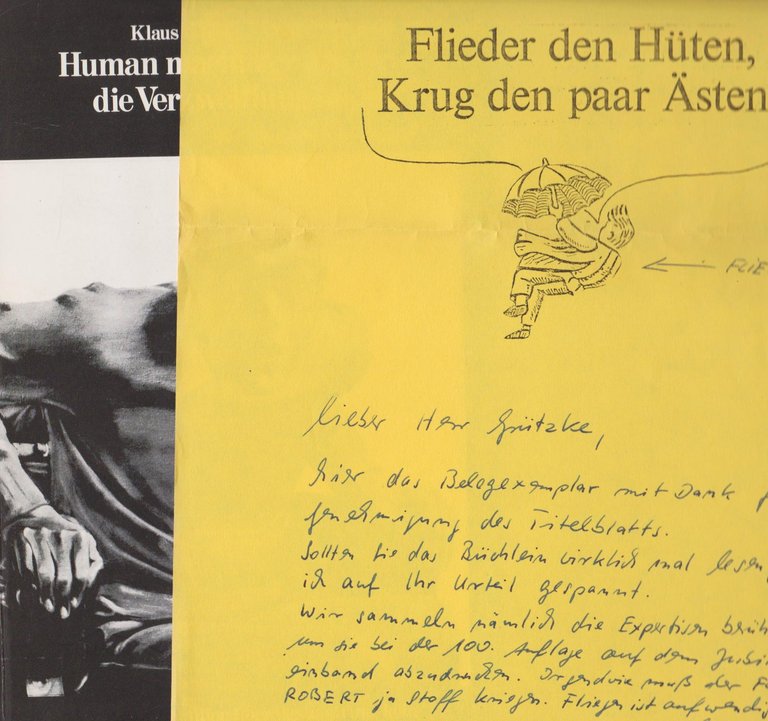 Klaus
Human m
die Ver
Flieder den Hüten,
Krug den paar Ästen
← FLIE
Lieber Herr Grützke,
hier das Belegexemplar mit Dank f
Genehmigung des Titelblatts.
Sollten Sie das Büchlein wirklich mal lesen,
ich auf Ihr Urteil gespannt.
Wir sammeln nämlich die Expertisen berüh
um sie bei der 100. Auflage auf dem Jubi
einband abzudrucken. Irgendwie muß der F
ROBERT ja Stoff kriegen. Fliegen ist aufwendi